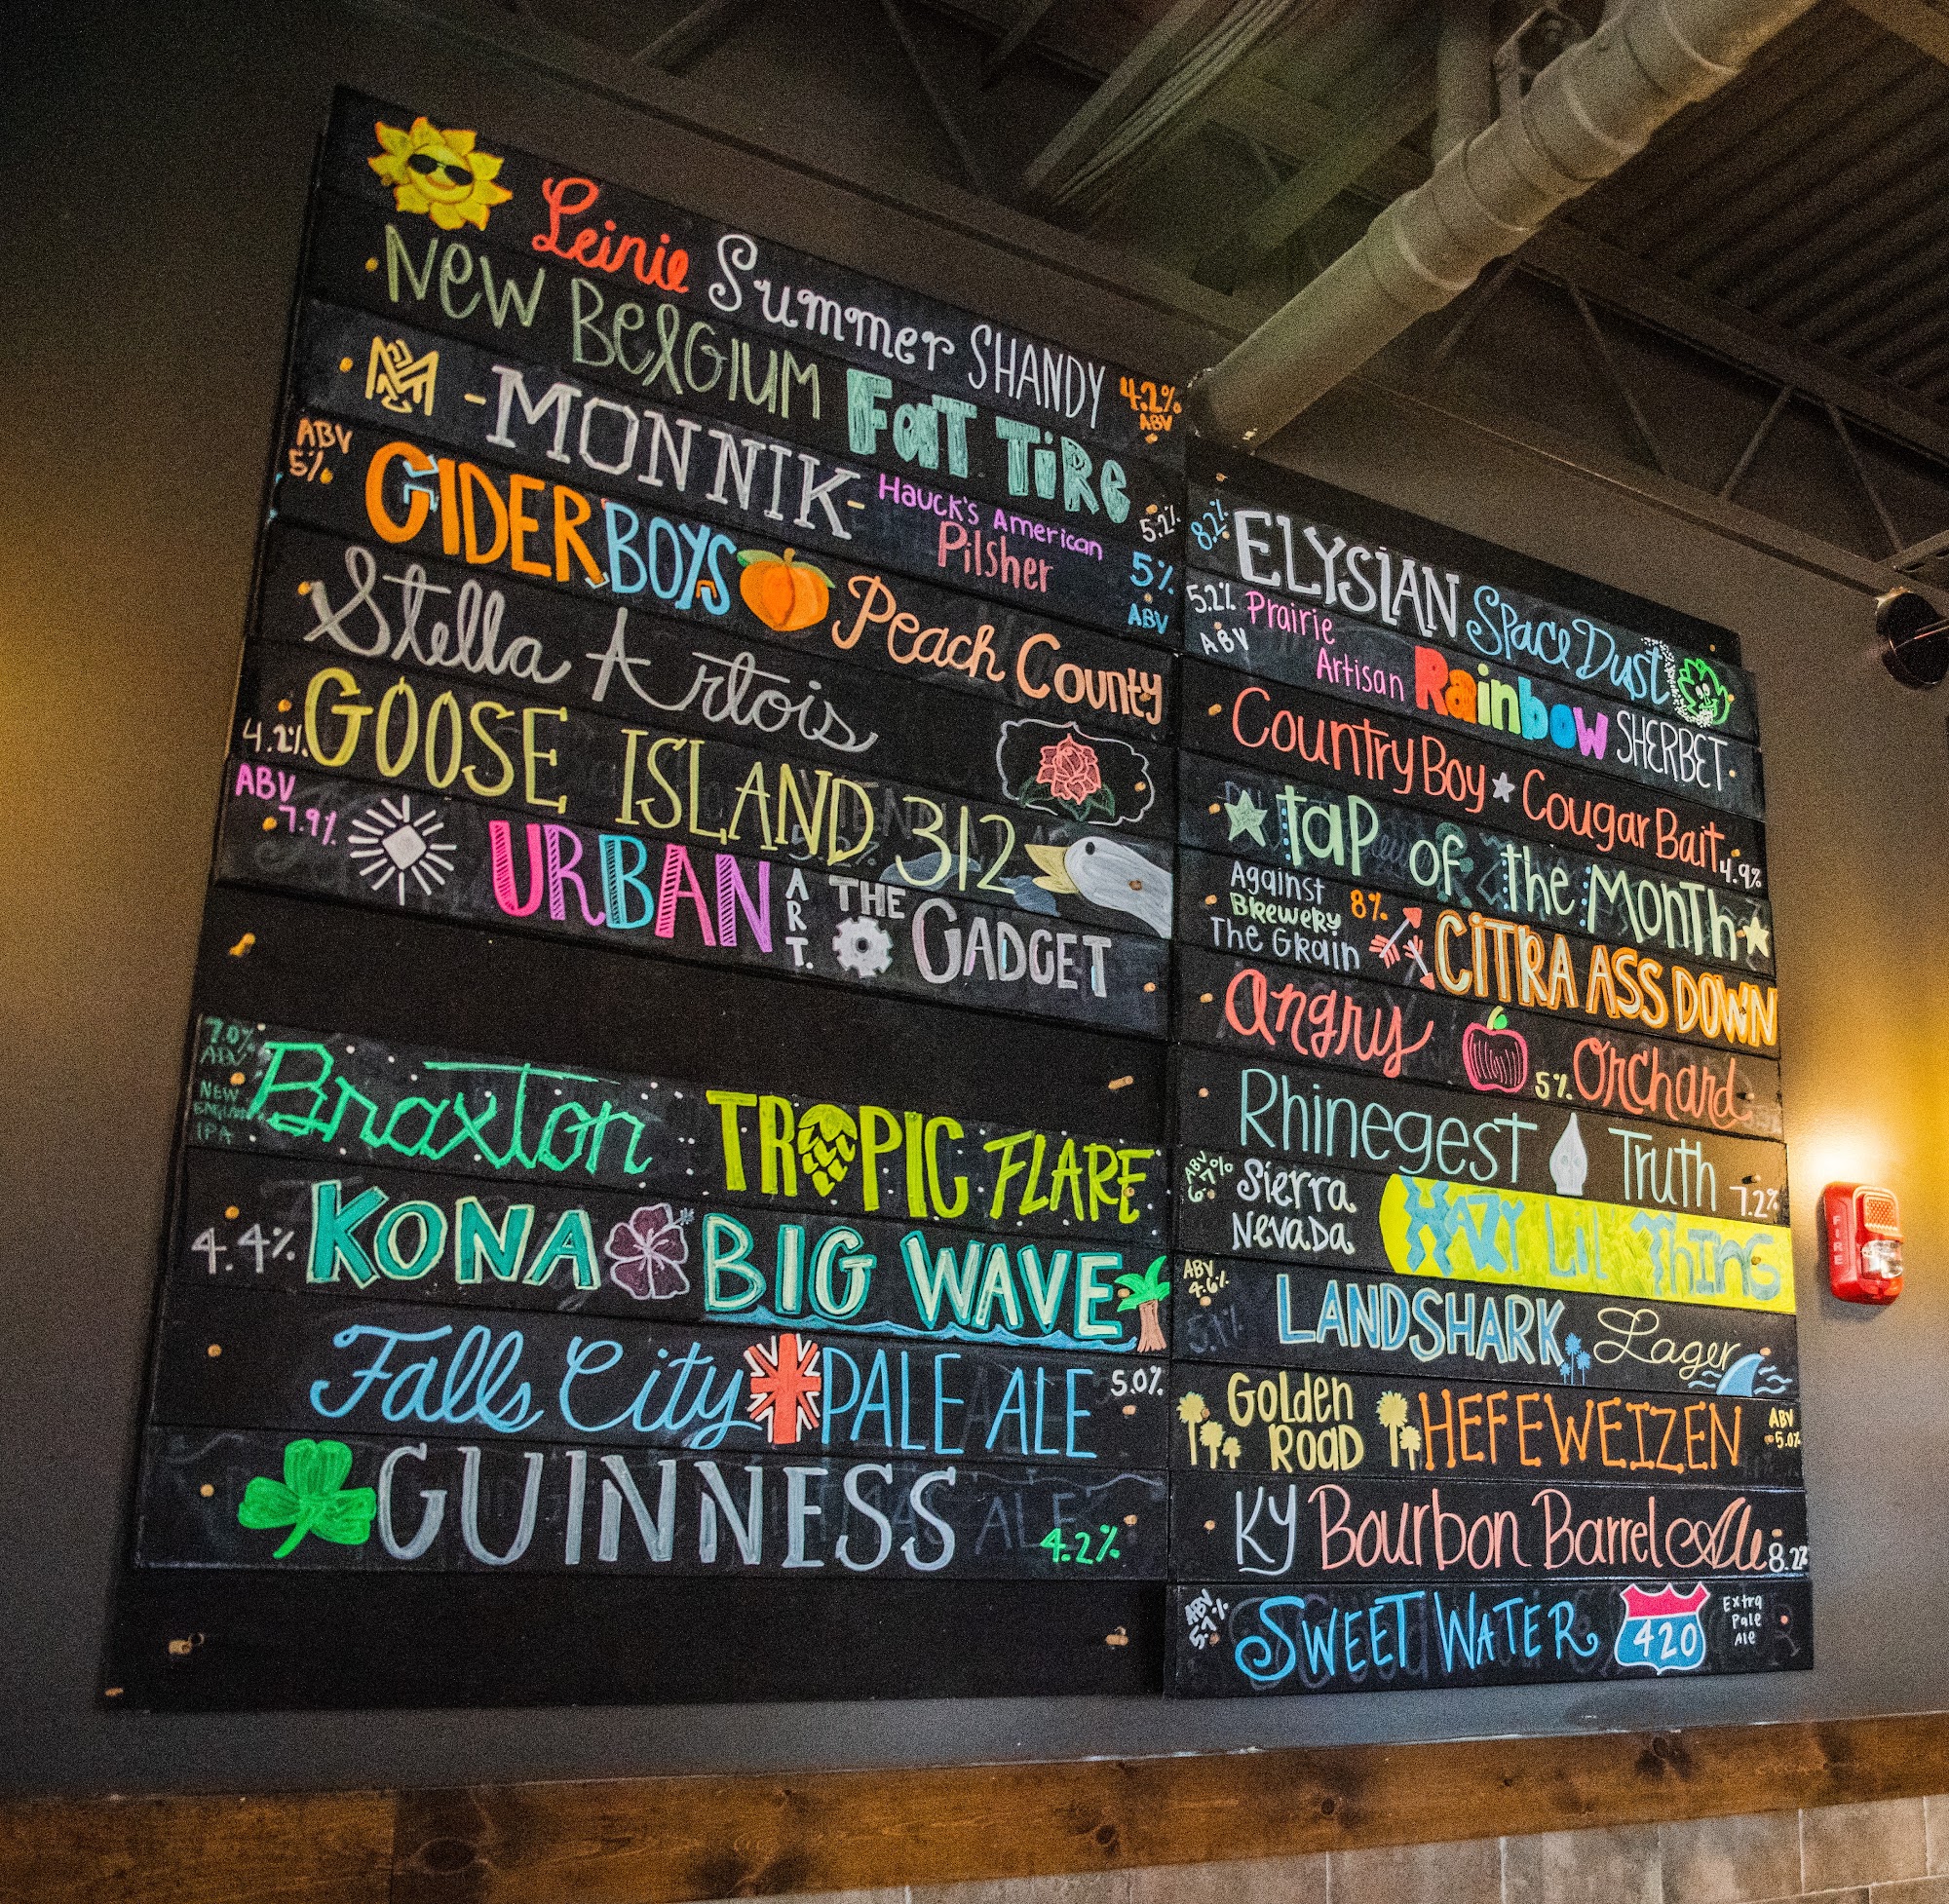 Leinie Summer SHANDY 4.2% ABV
New BelGIUM Fat TiRe 5.2%
-MONNIK- Hauck's American Pilsner 5% ABV
ABV 5% CIDERBOYS Peach County
Stella Artois
4.2% GOOSE ISLAND 312
ABV 7.9% URBAN ART. THE GADGET
7.0% ABV NEW ENGLAND IPA Braxton TROPIC FLARE
4.4% KONA BIG WAVE
Falls City PALE ALE 5.0%
GUINNESS 4.2%
8.2% ELYSIAN Space Dust
5.2% ABV Prairie Artisan Rainbow SHERBET
Country Boy Cougar Bait 4.9%
tap of the Month
Against The Grain Brewery 8% CITRA ASS DOWN
Angry 5% Orchard
Rhinegest Truth 7.2%
ABV 6.7% Sierra Nevada HAZY LiL THING
ABV 4.6% LANDSHARK Lager
Golden Road HEFEWEIZEN ABV 5.0%
KY Bourbon Barrel Ale 8.2%
ABV 5.7% SWEET WATER 420 Extra Pale Ale